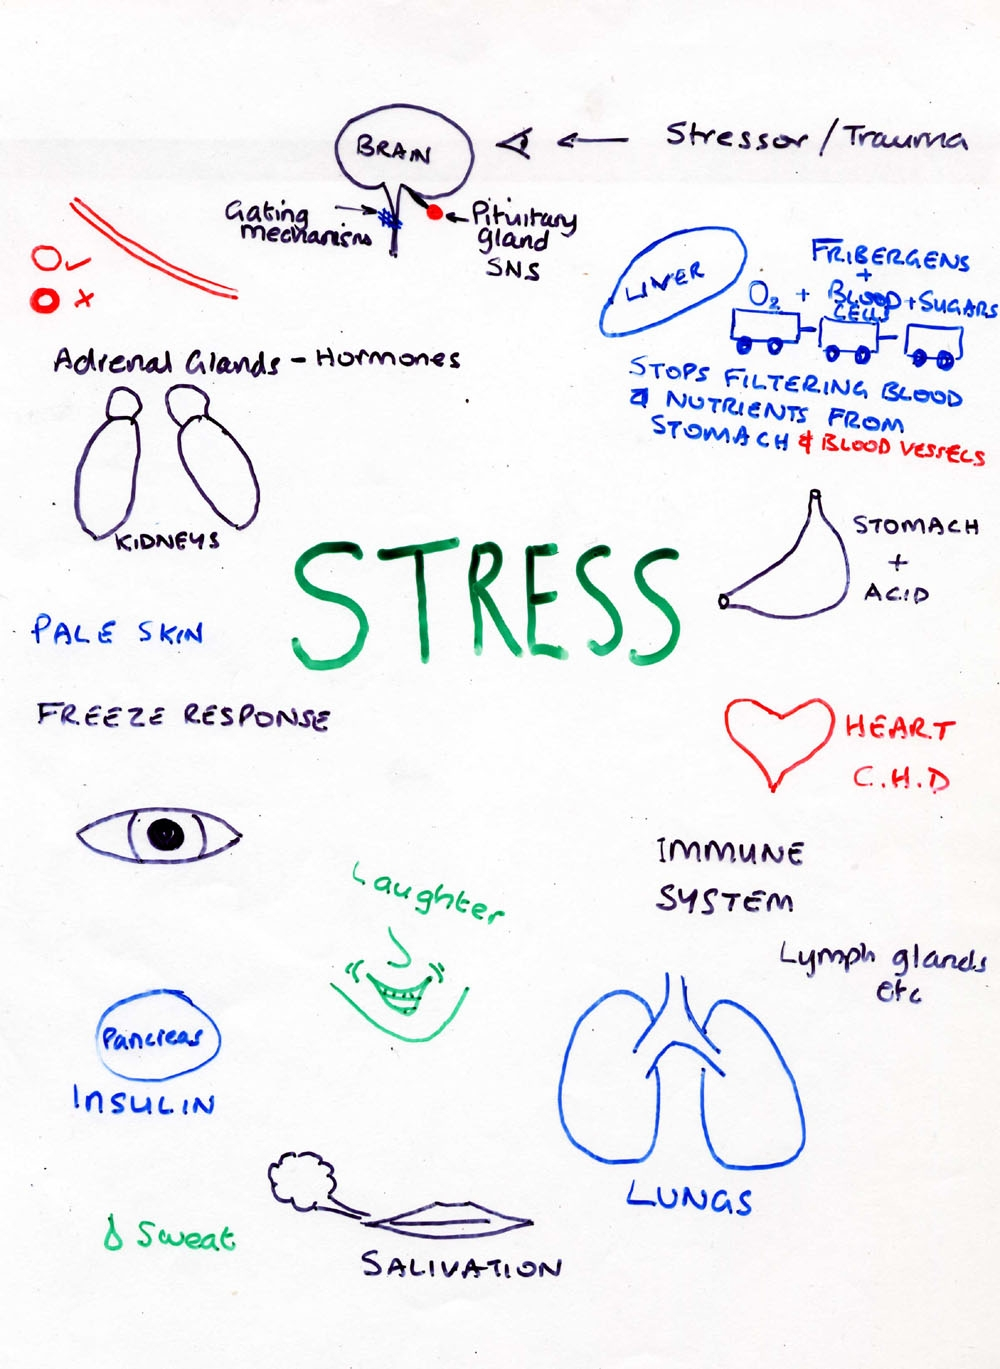 BRAIN
Stressor / Trauma
Gating
mechanisms
Pituitary
gland
SNS
LIVER
FRIBERGENS
+
O₂ + BLOOD + SUGARS
CELLS
STOPS FILTERING BLOOD
& NUTRIENTS FROM
STOMACH & BLOOD VESSELS
Adrenal Glands - Hormones
KIDNEYS
STOMACH
+
ACID
STRESS
PALE SKIN
FREEZE RESPONSE
HEART
C.H.D
IMMUNE
SYSTEM
Laughter
Lymph glands
etc
Pancreas
INSULIN
LUNGS
Sweat
SALIVATION